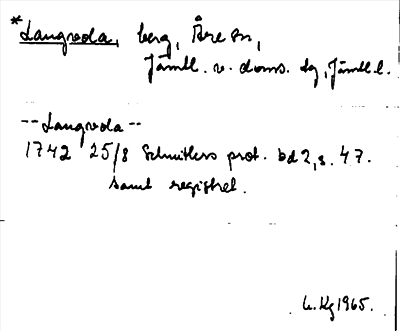 *Langvola, berg, Åre sn,
Jämtl. v. doms. tg, Jämtl. l.
-- Langvola --
1742 25/8 Schnitlers prot. bd 2, s. 47.
samt registret.
L. Kg 1965.